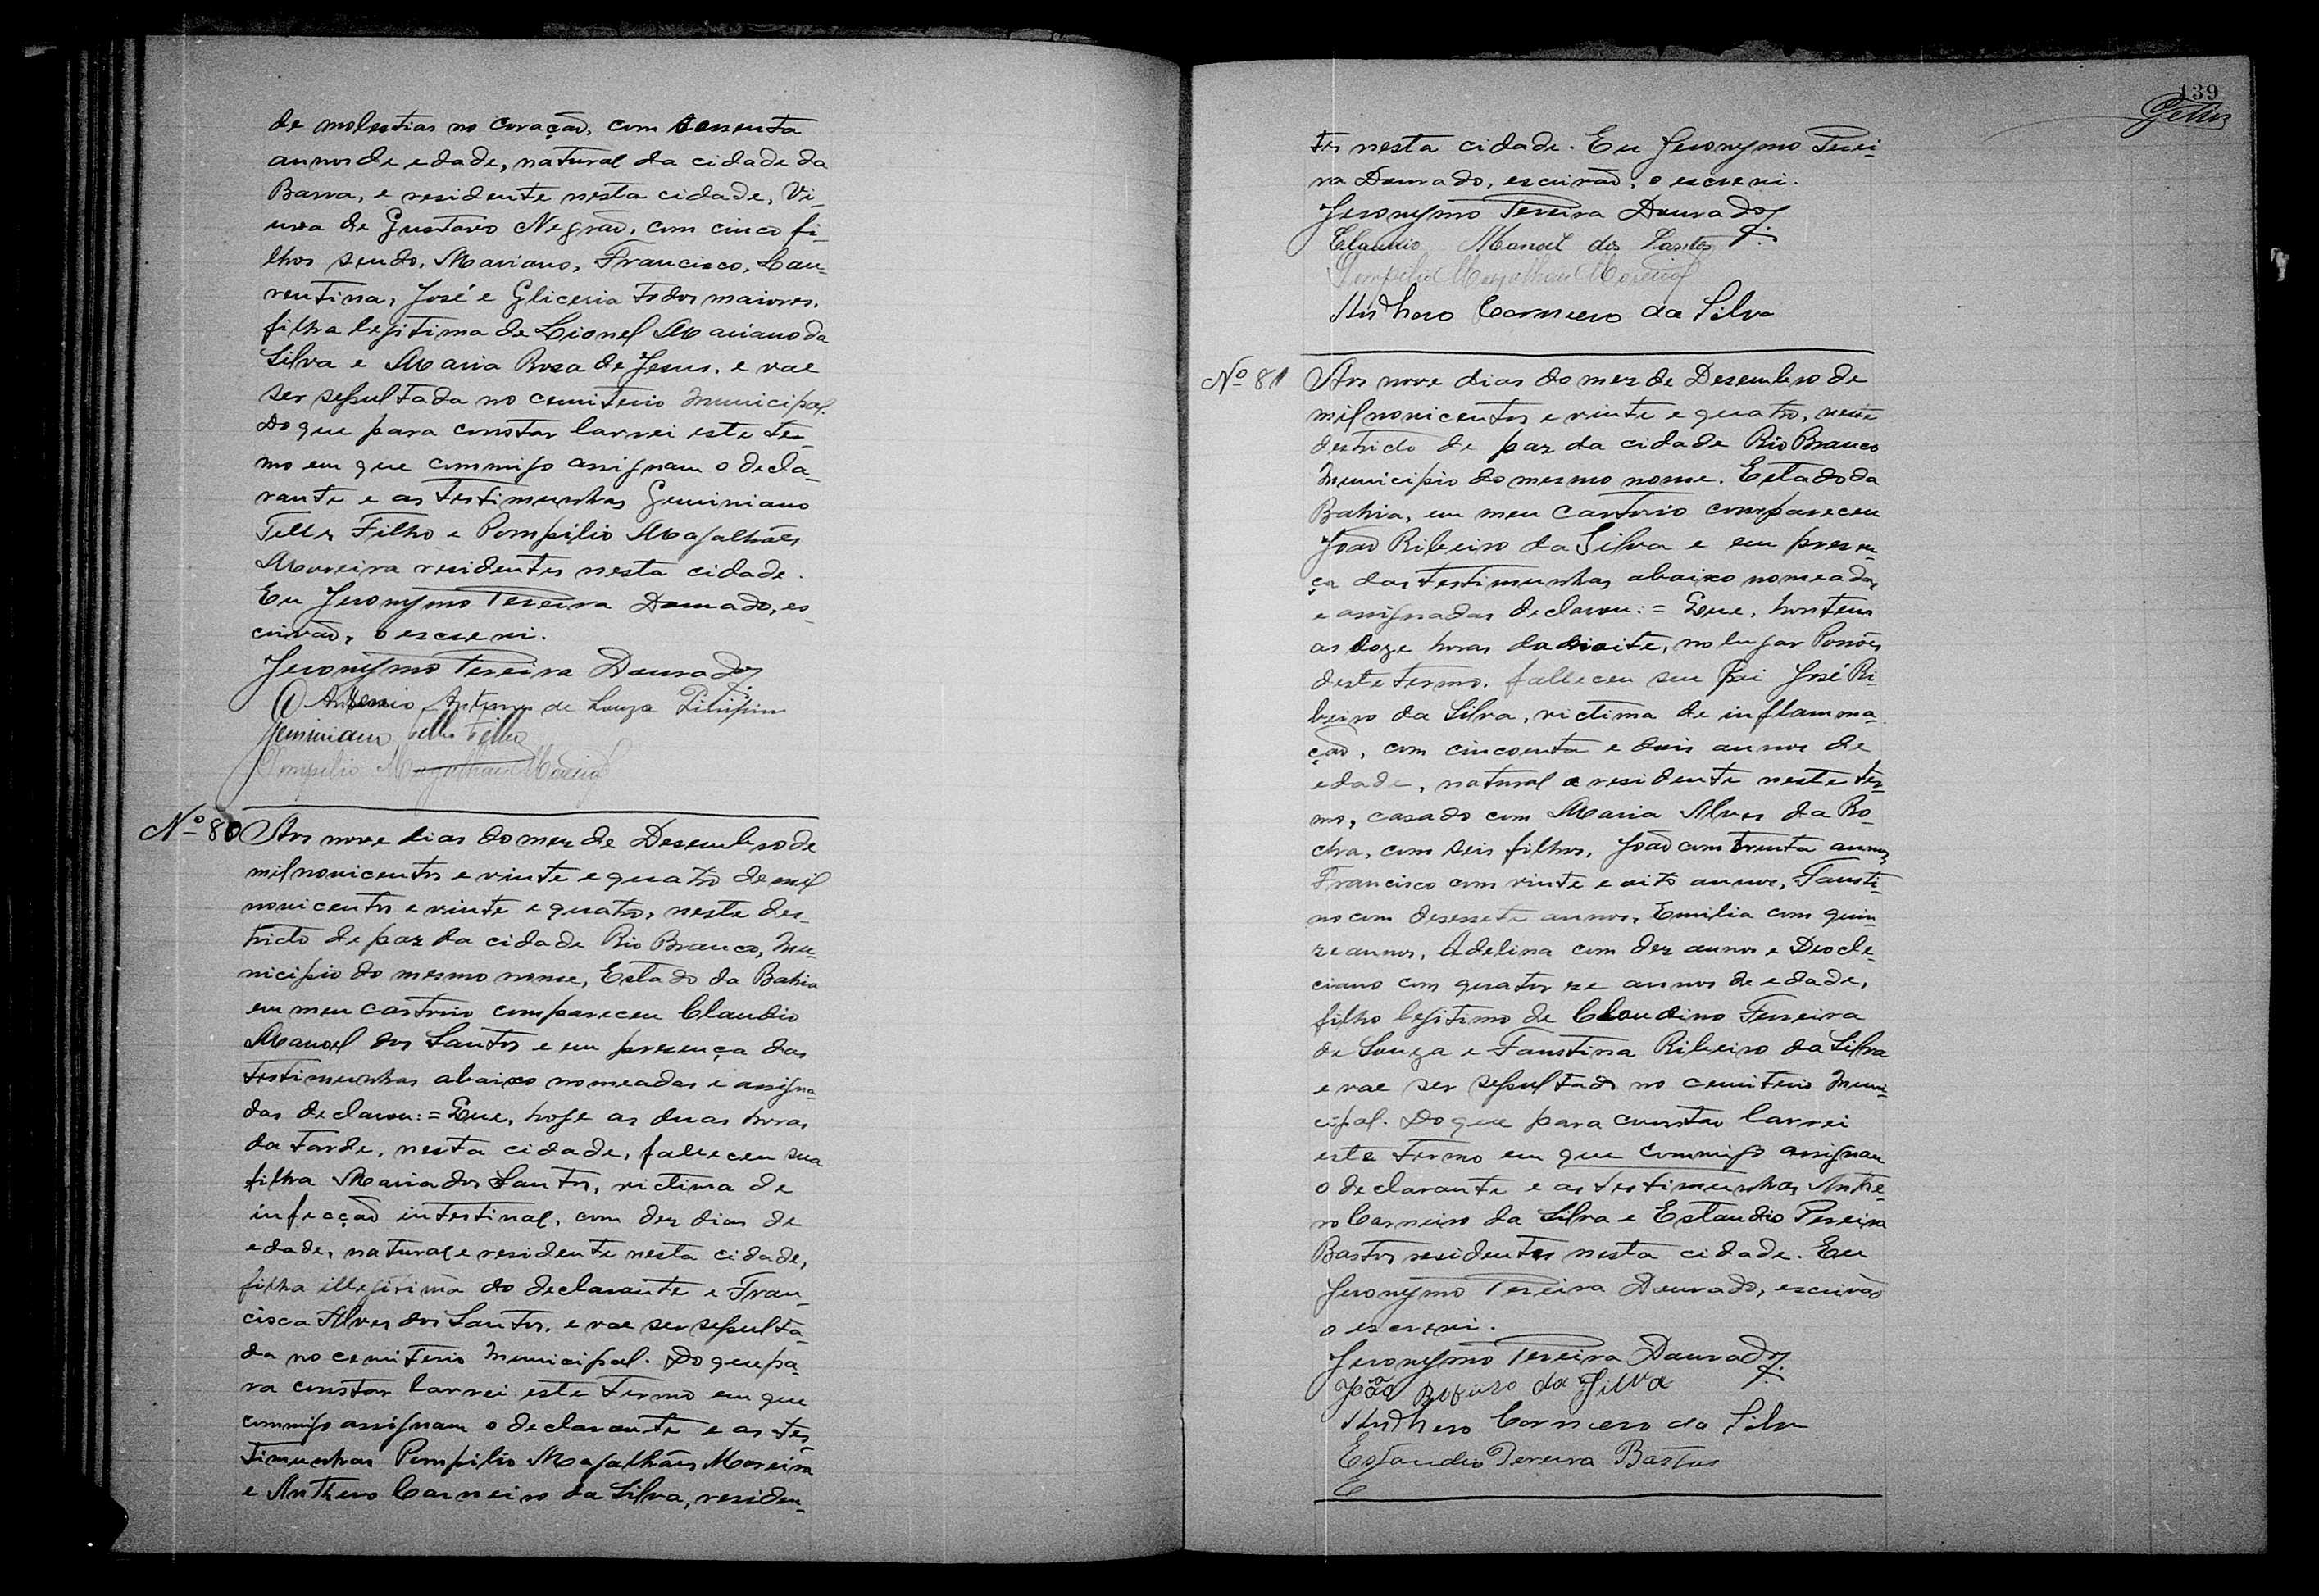 de molestias no coração, com sessenta
annos de edade, natural da cidade da
Barra, e residente nesta cidade, Vi-
uva de Gustavo Negrão, com cinco fi-
lhos sendo, Mariano, Francisco, Lau-
rentina, José e Gliceria todos maiores,
filha legitima de Lionel Mariano da
Silva e Maria Rosa de Jesus, e vae
ser sepultada no cemiterio Municipal.
Do que para constar lavrei este ter-
mo em que commigo assignam o decla-
rante e as testimunhas Geminiano
Telles Filho e Pompilio Magalhães
Moreira residentes nesta cidade.
Eu Jeronymo Pereira Dourado, es-
crivão, o escrevi.
Jeronymo Pereira Dourado
Antonio Antunes de Souza
Geminiano Telles Filho
Pompilio Magalhães Moreira
Nº 80 Aos nove dias do mez de Desembro de
mil novicentos e vinte e quatro de mil
novicentos e vinte e quatro, neste des-
tricto de paz da cidade Rio Branco, Mu-
nicipio do mesmo nome, Estado da Bahia
em meu cartorio compareceu Claudio
Manoel dos Santos e em presença das
testimunhas abaixo nomeadas e assigna-
das declarou: = Que, hoje as duas horas
da tarde, nesta cidade, falleceu sua
filha Maria dos Santos, victima de
infecção intestinal, com dez dias de
edade, natural e residente nesta cidade,
filha illegitima do declarante e Fran-
cisca Alves dos Santos, e vae ser sepulta-
da no cemiterio Municipal. Do que pa-
ra constar lavrei este termo em que
commigo assignam o declarante e as tes-
timunhas Pompilio Magalhães Moreira
e Anthero Carneiro da Silva, residen-
139
Telles
tes nesta cidade. Eu Jeronymo Perei-
ra Dourado, escrivão, o escrevi.
Jeronymo Pereira Dourado
Claudio Manoel dos Santos
Pompilio Magalhães Moreira
Anthero Carneiro da Silva
Nº 81 Aos nove dias do mez de Desembro de
mil novicentos e vinte e quatro, neste
destricto de paz da cidade Rio Branco
Municipio do mesmo nome. Estado da
Bahia, em meu cartorio compareceu
João Ribeiro da Silva e em presen-
ça das testimunhas abaixo nomeadas
e assignadas declarou: = Que, hontem
as doze horas da noite, no lugar Ponões
deste termo, falleceu seu Pai José Ri-
beiro da Silva, victima de inflamma-
ção, com cincoenta e dois annos de
edade, natural e residente neste ter-
mo, casado com Maria Alves da Ro-
cha, com seis filhos, João com trinta annos
Francisco com vinte e oito annos, Fausti-
no com desessete annos, Emilia com quin-
ze annos, Adelina com dez annos e Deocle-
ciano com quatorze annos de edade,
filho legitimo de Claudino Ferreira
de Souza e Faustina Ribeiro da Silva
e vae ser sepultado no cemiterio Muni-
cipal. Do que para constar lavrei
este termo em que commigo assignam
o declarante e as testimunhas Anthe-
ro Carneiro da Silva e Estaudio Pereira
Bastos residentes nesta cidade. Eu
Jeronymo Pereira Dourado, escrivão
o escrevi.
Jeronymo Pereira Dourado
João Ribeiro da Silva
Anthero Carneiro da Silva
Estaudio Pereira Bastos